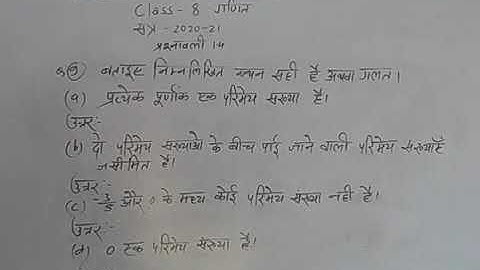 Class - 8 गणित
सत्र - 2020-21
प्रश्नावली 1.4
बताइए निम्नलिखित कथन सही है अथवा गलत।
(a) प्रत्येक पूर्णांक एक परिमेय संख्या है।
उत्तर:-
(b) दो परिमेय संख्याओ के बीच पाई जाने वाली परिमेय संख्याएँ
असीमित है।
उत्तर:-
(c) -3/5 और 0 के मध्य कोई परिमेय संख्या नही है।
उत्तर:-
(d) 0 एक परिमेय संख्या है।